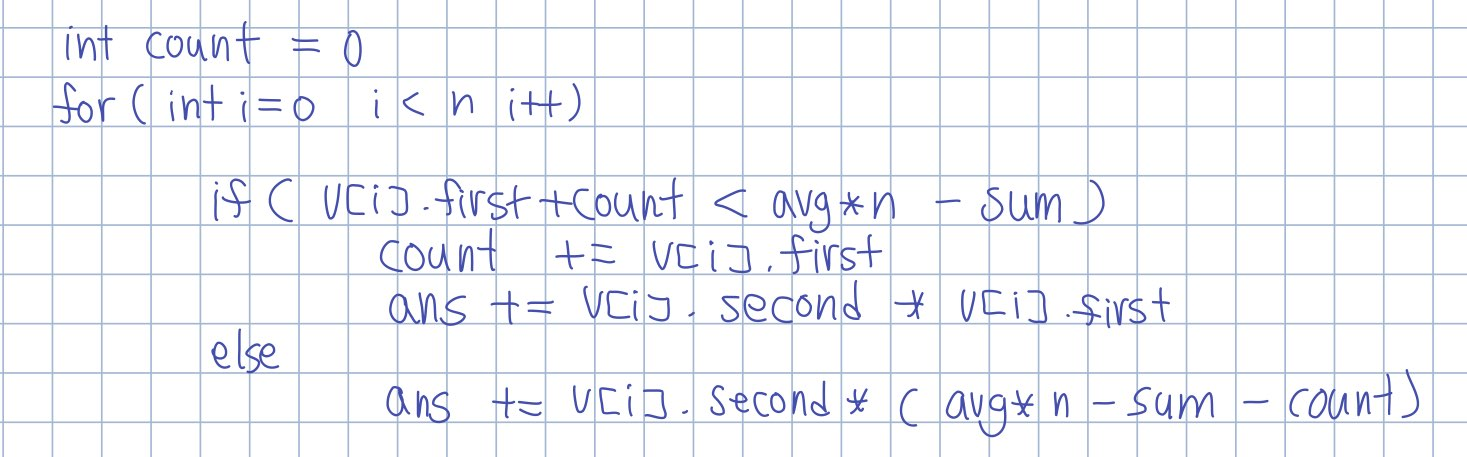 int count = 0
for ( int i=0 i < n i++)
if ( v[i].first+count < avg*n - sum)
count += v[i].first
ans += v[i]. second * v[i].first
else
ans += v[i]. second * ( avg* n - sum - count)